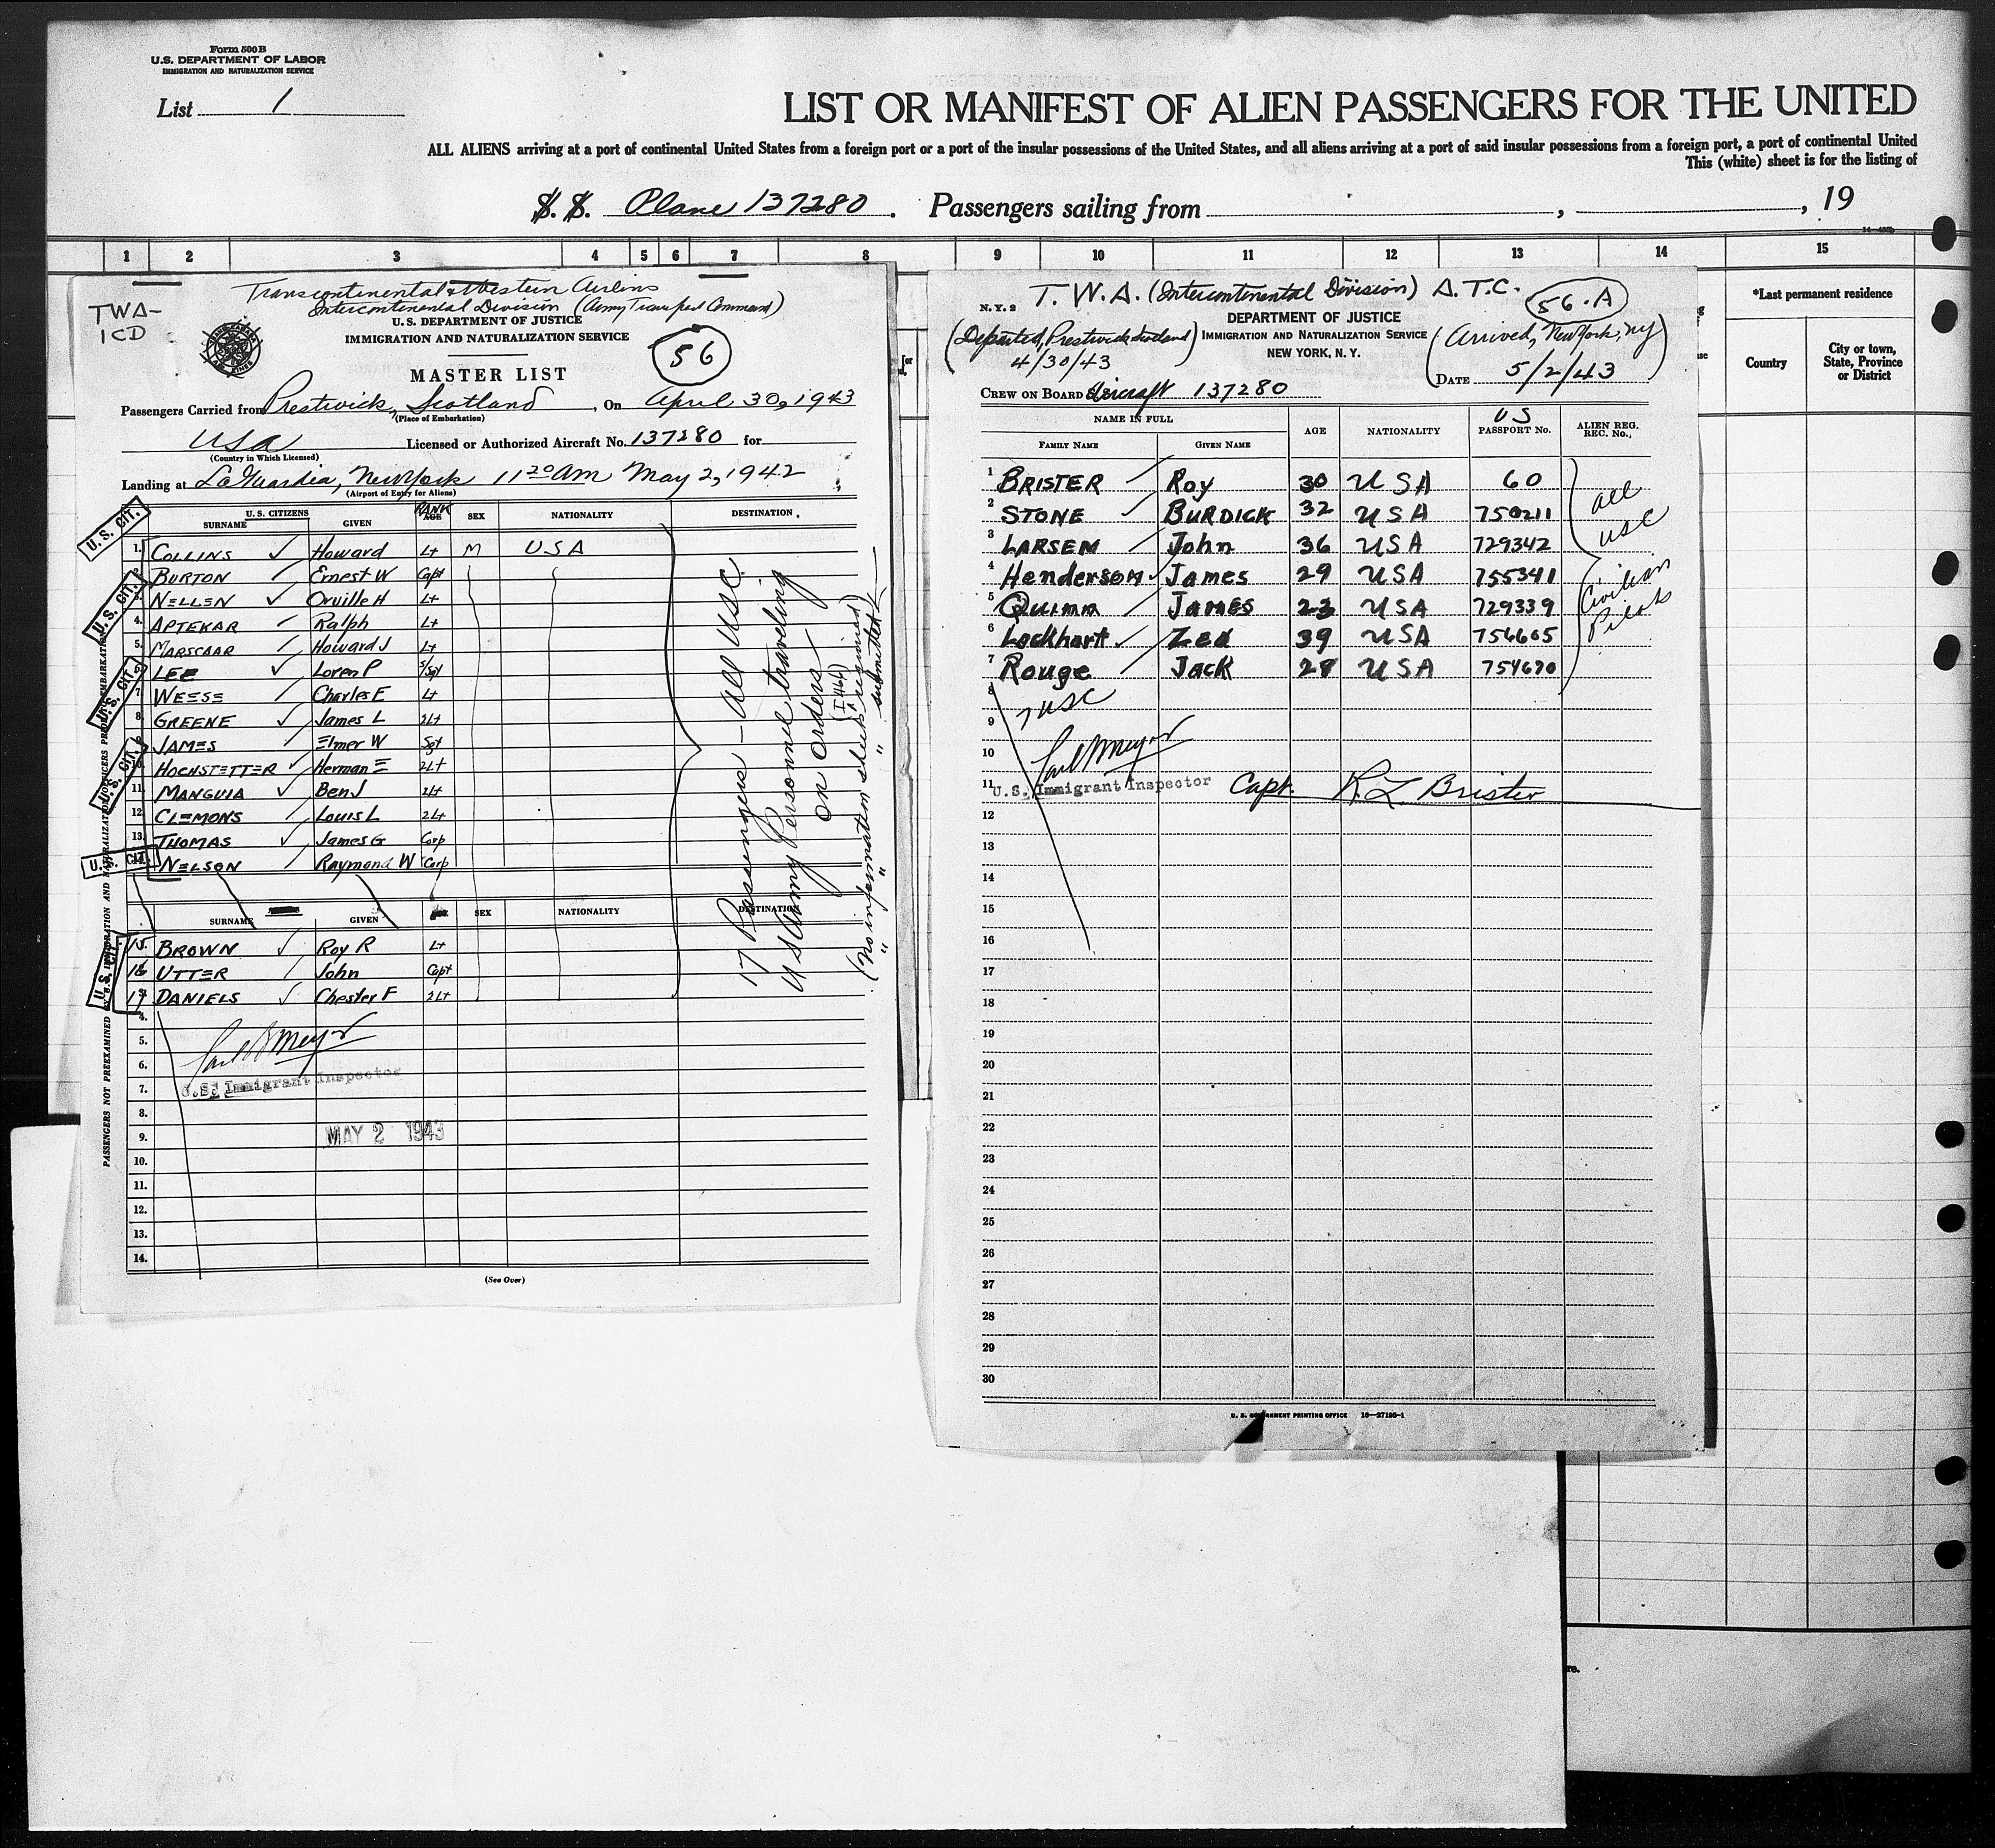 Form 500B
U.S. DEPARTMENT OF LABOR
IMMIGRATION AND NATURALIZATION SERVICE
List 1
LIST OR MANIFEST OF ALIEN PASSENGERS FOR THE UNITED
ALL ALIENS arriving at a port of continental United States from a foreign port or a port of the insular possessions of the United States, and all aliens arriving at a port of said insular possessions from a foreign port, a port of continental United
This (white) sheet is for the listing of
S. S. Plane 137280. Passengers sailing from , , 19
1 2 3 4 5 6 7 8 9 10 11 12 13 14 15
*Last permanent residence
Country
City or town, State, Province or District
TWA-
ICD
Transcontinental & Western Airlines
Intercontinental Division (Army Transport Command)
U.S. DEPARTMENT OF JUSTICE
IMMIGRATION AND NATURALIZATION SERVICE
56
MASTER LIST
Passengers Carried from Prestwick, Scotland, On April 30, 1943
(Place of Embarkation)
USA Licensed or Authorized Aircraft No. 137280 for
(Country in Which Licensed)
Landing at LaGuardia, New York 11 20 AM May 2, 1942
(Airport of Entry for Aliens)
U.S. CITIZENS
SURNAME GIVEN RANK AGE SEX NATIONALITY DESTINATION
1. COLLINS Howard Lt M USA
2. BURTON Ernest W Capt
NELLEN Orville H Lt
4. APTEKAR Ralph Lt
5. MARSCAAR Howard J Lt
6. LEE Loren P S/Sgt
7. WEESE Charles E Lt
8. GREENE James L 2Lt
9. JAMES Elmer W Sgt
10. HOCHSTETTER Herman E 2Lt
11. MANGUIA Ben J 2Lt
12. CLEMONS Louis L 2Lt
13. THOMAS James G Corp
14. NELSON Raymond W Corp
SURNAME GIVEN SEX NATIONALITY DESTINATION
15 BROWN Roy R Lt
16 UTTER John Capt
17 DANIELS Chester F 2Lt
4.
5.
6.
7.
8.
9.
10.
11.
12.
13.
14.
U.S. CIT.
U.S. CIT.
U.S. CIT.
U.S. CIT.
U.S. CIT.
U.S. CIT.
PASSENGERS NOT PREEXAMINED BY U.S. IMMIGRATION AND NATURALIZATION OFFICERS PRIOR TO EMBARKATION
17 Passengers - all USC.
US Army Personnel traveling
on orders
(I-466)
(No information sheets required)
" " " submitted
Paul B Meyer
U.S. Immigrant Inspector
MAY 2 1943
(See Over)
N.Y. 2
T.W.A. (Intercontinental Division) A.T.C.
56-A
DEPARTMENT OF JUSTICE
IMMIGRATION AND NATURALIZATION SERVICE
NEW YORK, N. Y.
(Departed, Prestwick Scotland)
4/30/43
(Arrived, New York, NY)
DATE 5/2/43
CREW ON BOARD Aircraft 137280
NAME IN FULL
FAMILY NAME GIVEN NAME AGE NATIONALITY US PASSPORT No. ALIEN REG. REC. No.
1 BRISTER Roy 30 USA 60
2 STONE BURDICK 32 USA 750211
3 LARSEM John 36 USA 729342
4 Henderson James 29 USA 755341
5 Quinn JAMES 23 USA 729339
6 Lockhart Zed 39 USA 756605
7 Rouge Jack 28 USA 754670
all
USC
Civilian
Pilots
8
7 USC
9
10
Paul B Meyer
11
U.S. Immigrant Inspector
Capt. R L Brister
12
13
14
15
16
17
18
19
20
21
22
23
24
25
26
27
28
29
30
U. S. GOVERNMENT PRINTING OFFICE 16—27195-1